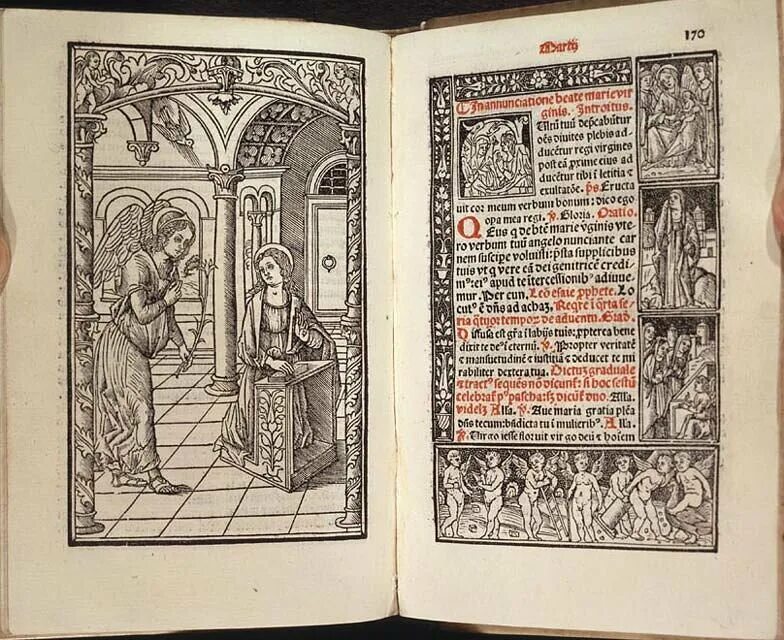 Martij
170
In annunciatione beate marie vir
ginis. Introitus.
Vultū tuū dep̄cabūtur
oēs diuites plebis ad-
ducētur regi virgines
post eā: proxime eius ad
ducētur tibi ī letitia ⁊
exultatōe. p̄s. Eructa
uit cor meum verbum bonum: dico ego
opa mea regi. ℣. Gloria. Oratio.
Deus q̄ de btē marie v̄ginis vte-
ro verbum tuū angelo nunciante car
nem suscipe voluisti: p̄sta supplicibus
tuis vt q̄ vere eā dei genitricē credi
mꝰ: eiꝰ apud te ītercessionibꝰ adiuue-
mur. Per eun. Lcō esaie prophete. Lo
cutꝰ ē dn̄s ad achaz. Reqͥre ī q̄rta fe-
ria q̄tuor tempoꝝ de aduentu. Grad.
Diffusa est grā ī labijs tuis: ꝓpterea bene
dixit te deꝰ ī eternū. ℣. Propter veritatē
⁊ mansuetudinē ⁊ iustitiā ⁊ deducet te mi
rabiliter dextera tua. Dictus graduale
⁊ tractꝰ sequēs nō dicunt᷑: si hoc festū
celebrat᷑ pꝰ pascha: sꝫ dicit᷑ vno. Alla.
videlꝫ Alla. ℣. Aue maria gratia plēa
dn̄s tecum: bn̄dicta tu ī mulieribꝰ. Alla.
℣. Uirga iesse floruit virgo deū ⁊ hoīem